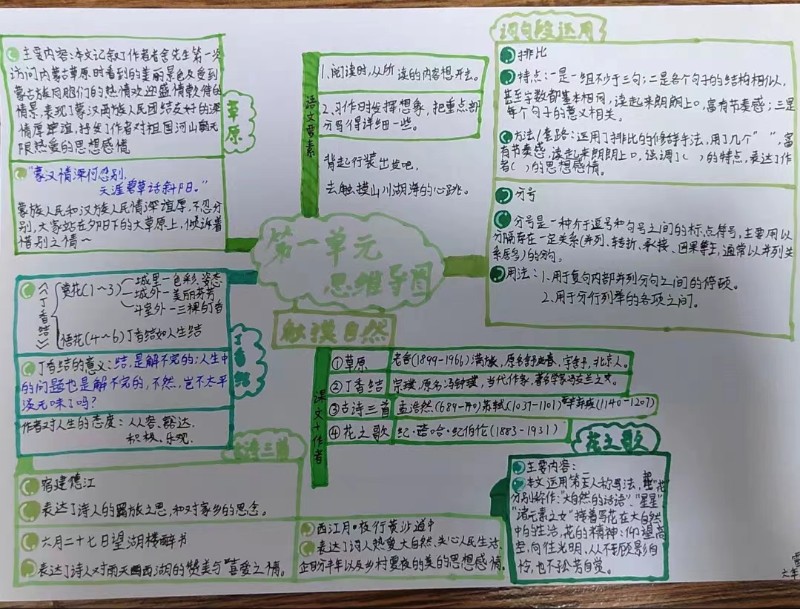 主要内容:本文记叙了作者老舍先生第一次
访问内蒙古草原时看到的美丽景色及受到
蒙古族同胞们的热情欢迎盛情款待的
情景,表现了蒙汉两族人民团结友好的深
情厚谊,抒发了作者对祖国河山无
限热爱的思想感情
草原
“蒙汉情深何忍别,
天涯碧草话斜阳。”
蒙族人民和汉族人民情深谊厚,不忍分
别,大家站在夕阳下的大草原上,倾诉着
惜别之情~
语文要素
1.阅读时,从所读的内容想开去。
2.习作时发挥想象,把重点部
分写得详细一些。
背起行装出发吧,
去触摸山川湖海的心跳。
词句段运用
排比
特点:一是一组不少于三句;二是各个句子的结构相似,
甚至字数都基本相同,读起来朗朗上口,富有节奏感;三是
每个句子的意义相关。
方法/套路:运用了排比的修辞手法,用了几个“ ”,富
有节奏感,读起来朗朗上口,强调了( )的特点,表达了作
者( )的思想感情。
分号
分号是一种介于逗号和句号之间的标点符号,主要用以
分隔存在一定关系(并列、转折、承接、因果等,通常以并列关
系居多)的分句。
用法:1.用于复句内部并列分句之间的停顿。
2.用于分行列举的各项之间。
第一单元
思维导图
触摸自然
《丁香结》
赏花(1~3)
城里—色彩、姿态
城外—美丽芳芳
斗室外—三棵白香
悟花(4~6)丁香结如人生结
丁香结
丁香结的意义:结,是解不完的;人生中
的问题也是解不完的,不然,岂不太平
淡无味了吗?
作者对人生的态度:从容、豁达、
积极、乐观。
课文+作者
①草原
老舍(1899-1966)满族,原名舒庆春,字舍予,北京人。
②丁香结
宗璞,原名冯钟璞,当代作家,著名学家冯友兰之女。
③古诗三首
孟浩然(689-740)苏轼(1037-1101)辛弃疾(1140-1207)
④花之歌
纪·哈·纪伯伦(1883-1931)
诗三首
宿建德江
表达了诗人的羁旅之思,和对家乡的思念。
六月二十七日望湖楼醉书
表达了诗人对雨天西湖的赞美与喜爱之情。
西江月·夜行黄沙道中
表达了诗人热爱大自然,关心人民生活,
丰年以及乡村夏夜的美的思想感情。
花之歌
主要内容:
本文运用第人称写法,花
分别称作:“大自然的话语”“星星”
“诸元素之女”接着写花在大自然
中的生活,花的精神:仰望高
空,向往光明,从不顾影自
怜,也不孤芳自赏。